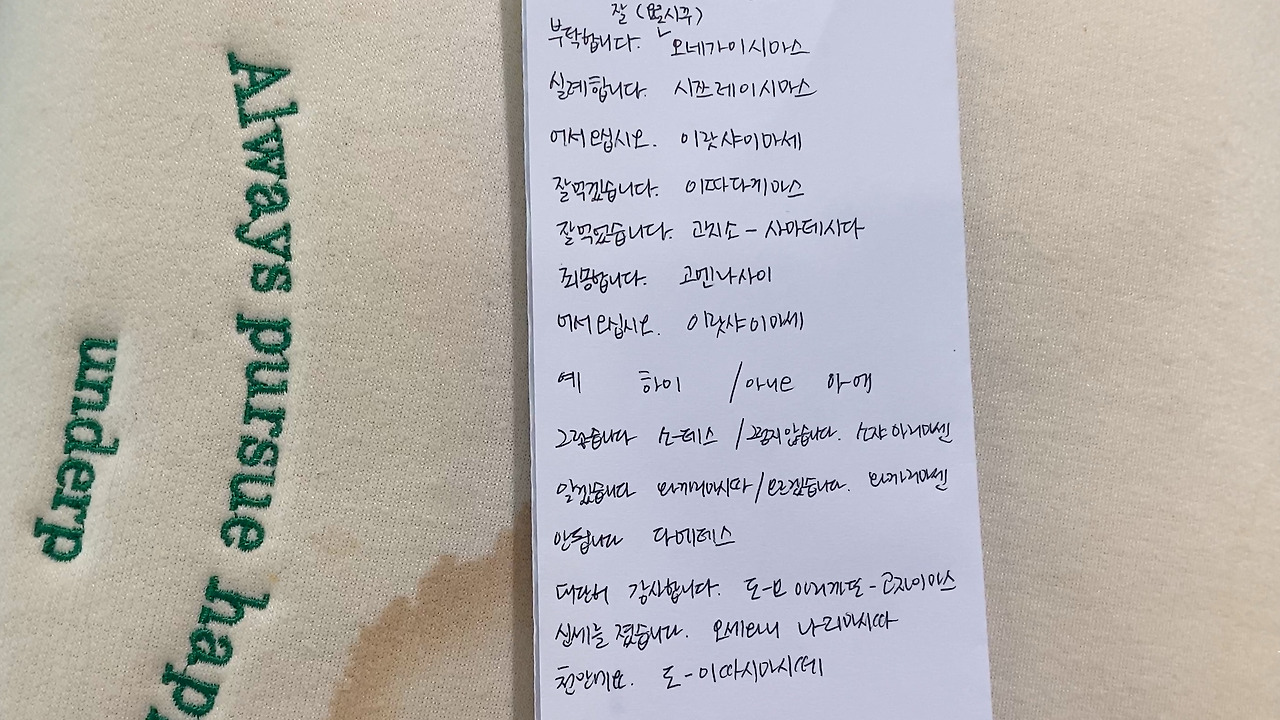 Always pursue hap
underp
잘 (요로시꾸)
부탁합니다. 오네가이시마스
실례합니다. 시쯔레이시마스
어서오십시오. 이랏샤이마세
잘먹겠습니다. 이따다끼마스
잘먹었습니다. 고지소-사마데시다
죄송합니다. 고멘나사이
어서오십시오. 이랏샤이마세
예 하이 /아니오
그렇습니다 소-데스 /그렇지않습니다.
알겠습니다 와까리마시따/모르겠습니다. 와까리마센
안됩니다 다메데스
대단히 감사합니다. 도-모 아리가또-고자이마스
신세를 졌습니다. 오세와니 나리마시따
천만에요. 도-이따시마시떼